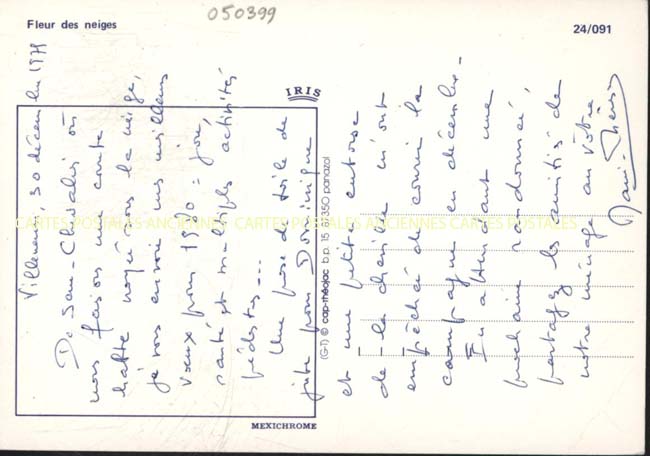 Fleur des neiges
050399
24/091
IRIS
Villeneuve, 30 décembre 1979
De Chevalier où
nous faisons une courte
halte noyés sous la neige,
je vous envoie mes meilleurs
vœux pour 1980 = joie,
santé et multiples activités
pédestres...
Une pose de toile de
jute pour Dominique
et une petite entorse
de la m'ont
empêché de courir la
campagne en décembre -
En attendant une
prochaine randonnée,
partagez les amitiés de
notre ménage au vôtre
(G-1) © cap-théojac b.p. 15 87350 panazol
MEXICHROME
CARTES POSTALES ANCIENNES CARTES POSTALES ANCIENNES CARTES POSTALES